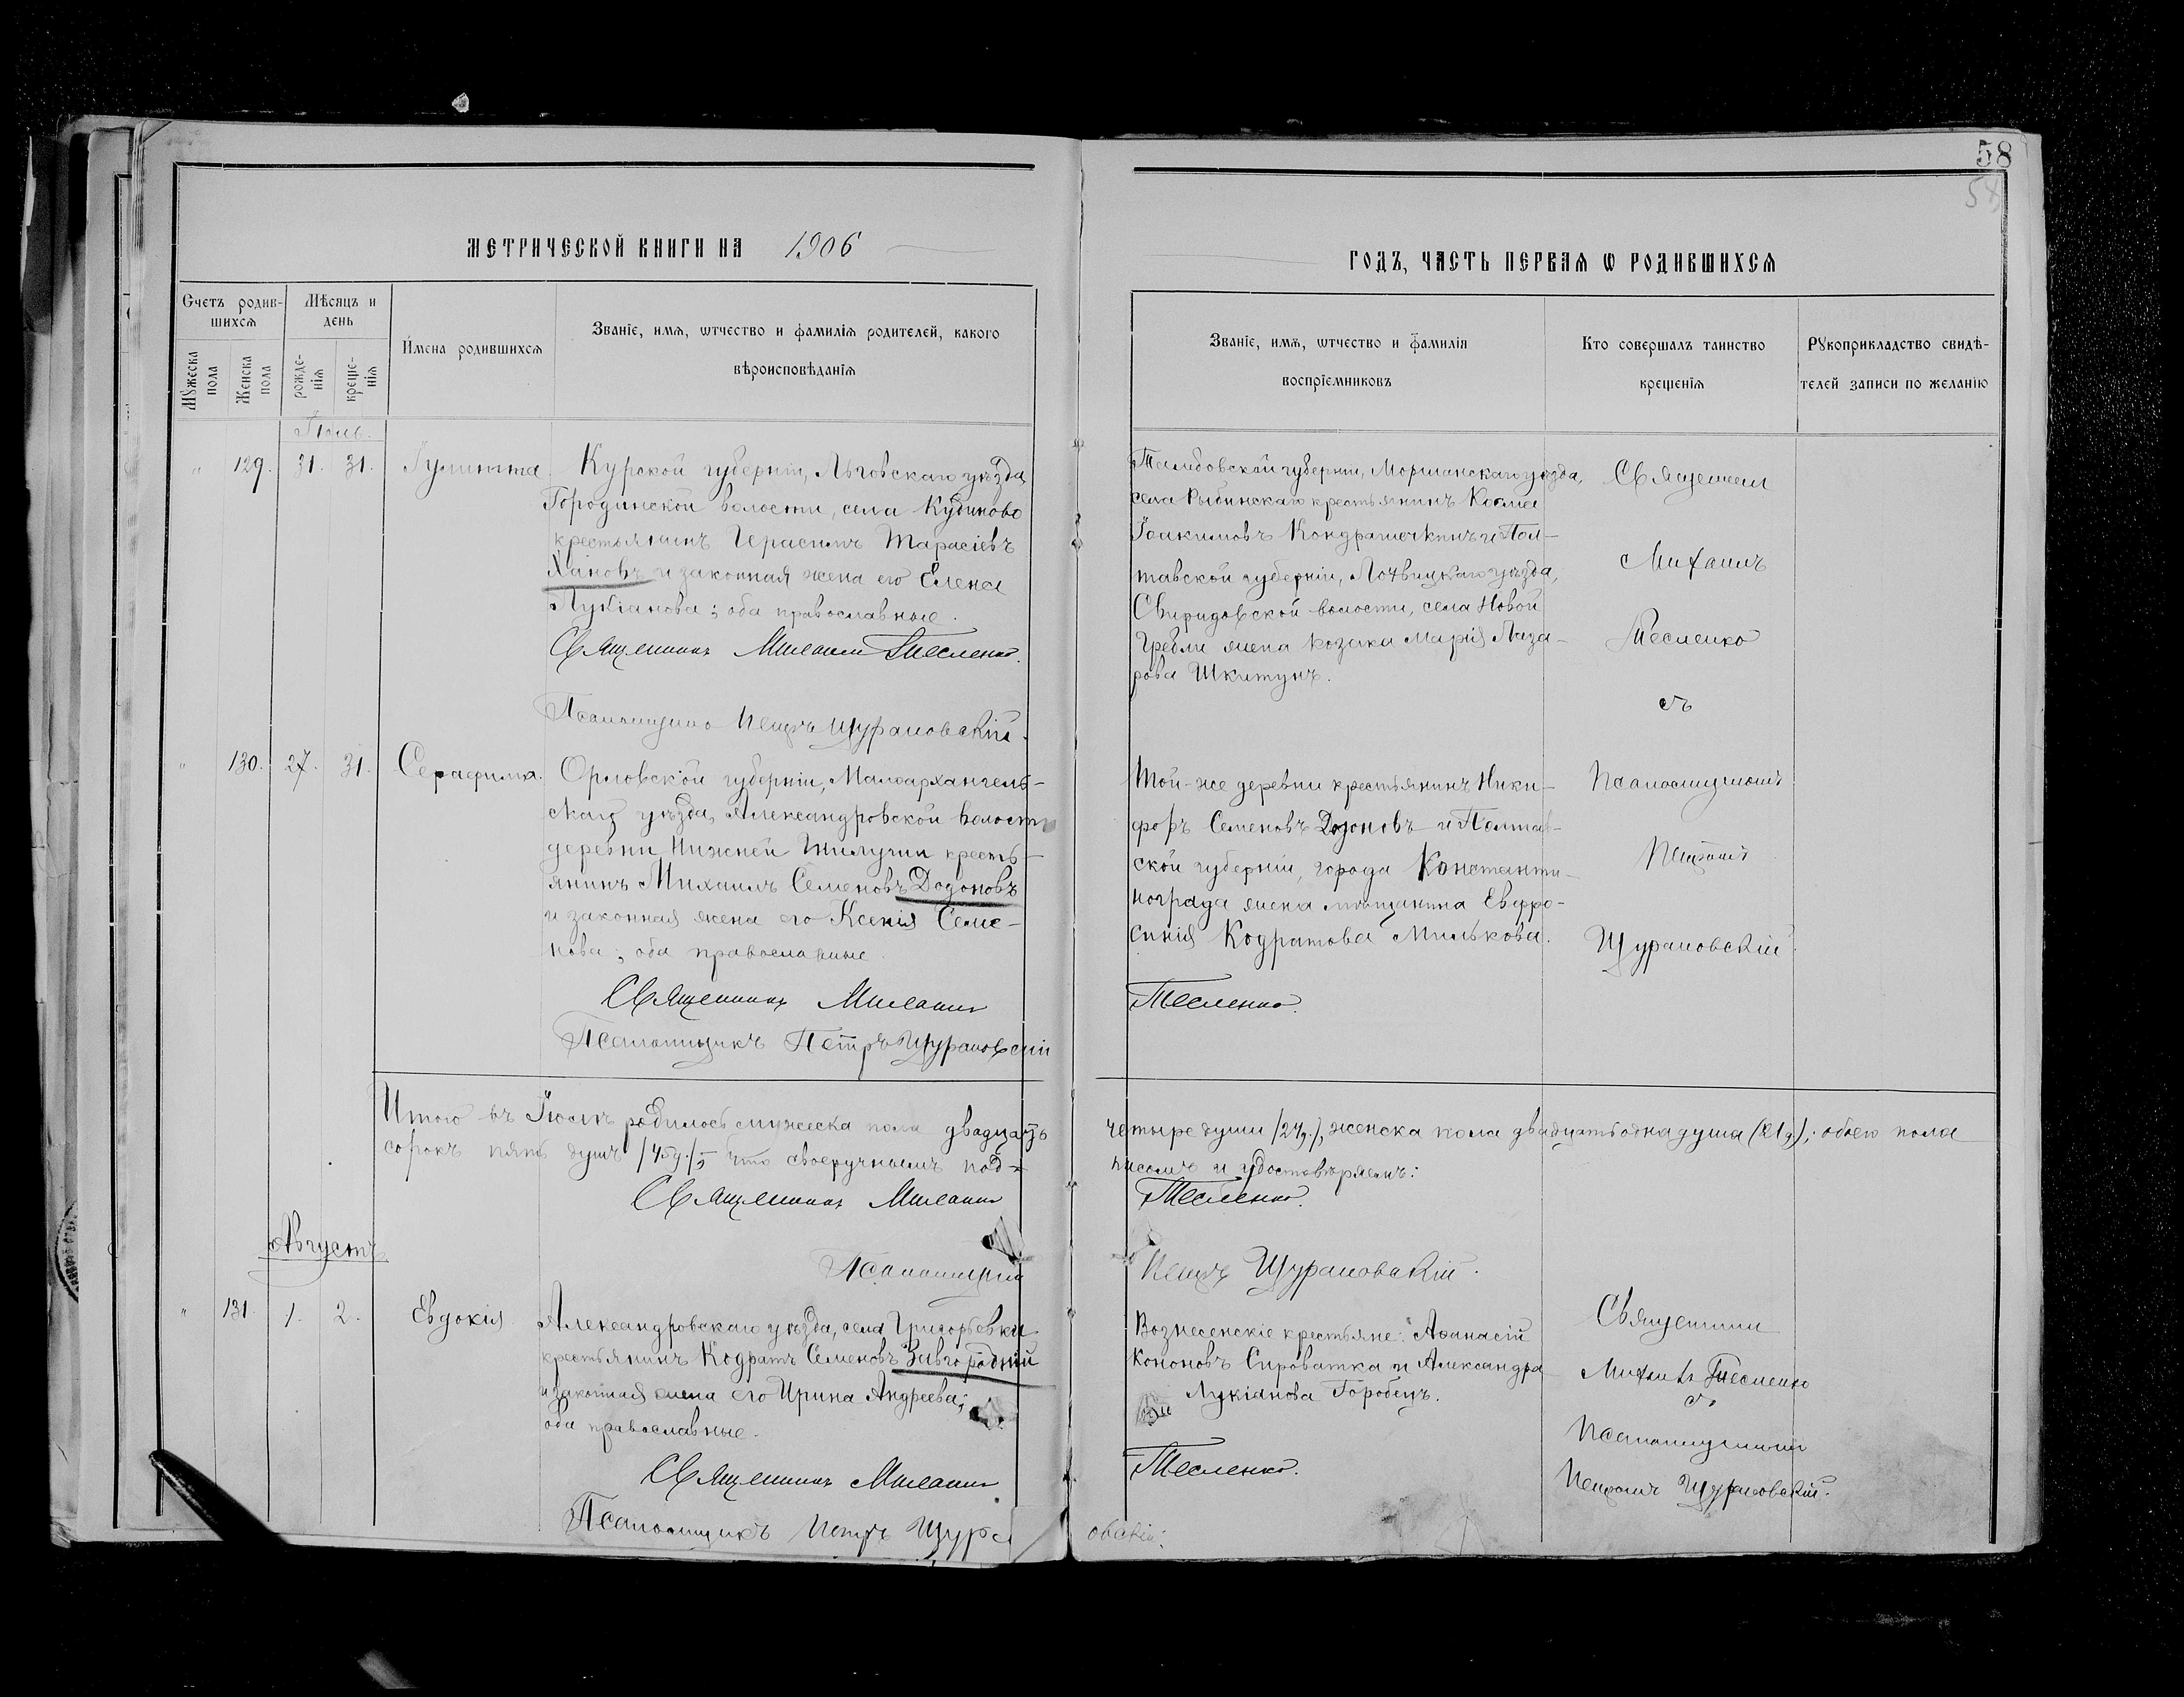 58
58
МЕТРИЧЕСКОЙ КНИГИ НА 1906
ГОДЪ, ЧАСТЬ ПЕРВАѦ Ѡ РОДИВШИХСѦ
Счетъ родившихсѧ
Мѣсяцъ и день
Имена родившихсѧ
Званіе, имѧ, ѡтчество и фамиліѧ родителей, какого
вѣроисповѣданіѧ
Мꙋжеска пола
Женска пола
рожденіѧ
крещенія
Званіе, имѧ, ѡтчество и фамиліѧ
воспріемниковъ
Кто совершалъ таинство
крещеніѧ
Рꙋкоприкладство свидѣ-
телей записи по желанію
Іюль.
" 129. 31. 31. Іулитта
Курской губерніи, Льговскаго уѣзда,
Городинской волости, села Кудиново
крестьянинъ Герасимъ Тарасіевъ
Хановъ и законная жена его Елена
Лукіанова; оба православные.
Священникъ Михаилъ Тесленко.
Псаломщикъ Петръ Щурановскій.
Тамбовской губерніи, Моршанскаго уѣзда,
села Рыбинскаго крестьянинъ Косма
Іоакимовъ Кондрашечкинъ и Пол-
тавской губерніи, Лохвицкаго уѣзда,
Свиридовской волости, села Новой
Гребли жена козака Марія Лаза-
рова Шкитунъ.
Священник
Михаилъ
Тесленко
съ
" 130. 27. 31. Серафима.
Орловской губерніи, Малоархангель-
скаго уѣзда, Александровской волости
деревни Нижней Гнилуши кресть-
янинъ Михаилъ Семеновъ Додоновъ
и законная жена его Ксенія Семе-
нова; оба православные.
Священникъ Михаилъ
Тесленко.
Псаломщикъ Петръ Щурановскій
Той-же деревни крестьянинъ Ники-
форъ Семеновъ Додоновъ и Полтав-
ской губерніи, города Константи-
нограда жена мѣщанина Евфро-
синія Кодратова Милькова.
Псаломщикомъ
Петромъ
Щурановскій
Итого въ Іюлѣ родилось мужеска пола двадцать
четыре души /24д./, женска пола двадцать одна душа (21д); обоего пола
сорокъ пять душъ /45д./; что своеручнымъ под-
писомъ и удостовѣряемъ:
Священникъ Михаилъ
Тесленко.
Псаломщикъ
Петръ Щурановскій.
Августъ
" 131. 1. 2. Евдокія
Александровскаго уѣзда, села Григорьевки
крестьянинъ Кодратъ Семеновъ Завгородній
и законная жена его Ирина Андреева;
оба православные.
Священникъ Михаилъ
Тесленко.
Псаломщикъ Петръ Щуран
овскій.
Вознесенскіе крестьяне: Аѳанасій
Кононовъ Сироватка и Александра
Лукіанова Горобецъ.
Священник
Михаилъ Тесленко
съ
Псаломщикомъ
Петромъ Щурановскій.